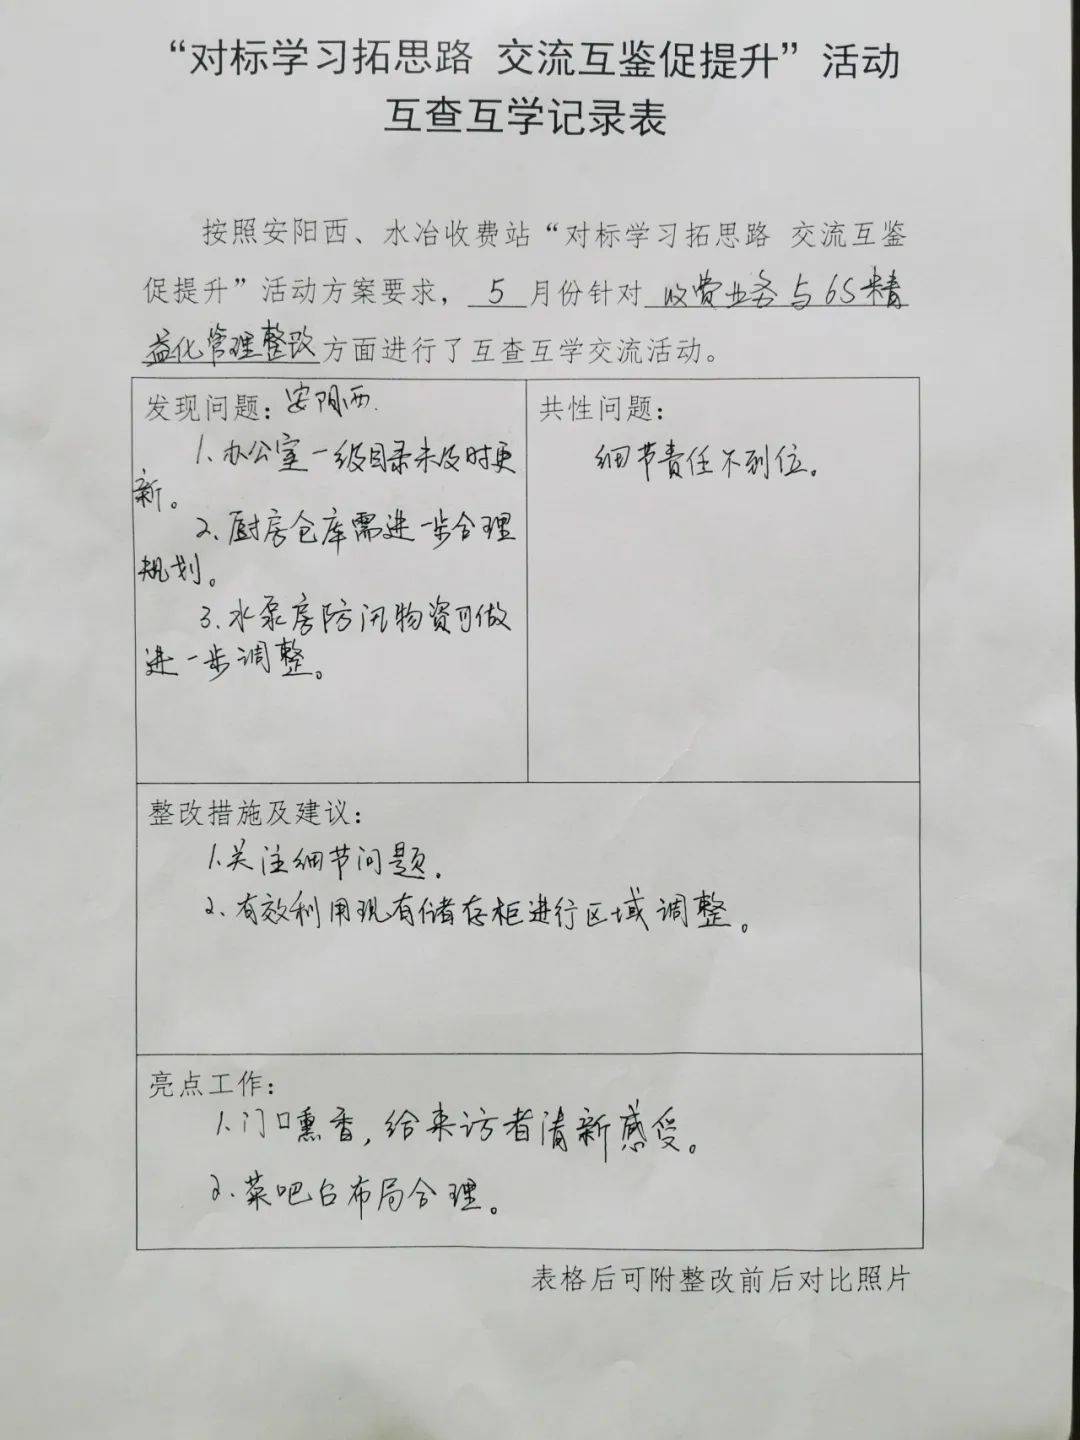 “对标学习拓思路 交流互鉴促提升”活动
互查互学记录表
按照安阳西、水冶收费站“对标学习拓思路 交流互鉴
促提升”活动方案要求，5月份针对收费业务与6S精
益化管理整改方面进行了互查互学交流活动。
发现问题：安阳西.
1、办公室一级目录未及时更
新。
2、厨房仓库需进一步合理
规划。
3、水泵房防汛物资可做
进一步调整。
共性问题：
细节责任不到位。
整改措施及建议：
1.关注细节问题.
2、有效利用现有储存柜进行区域调整。
亮点工作：
1.门口熏香，给来访者清新感受。
2、菜吧台布局合理。
表格后可附整改前后对比照片